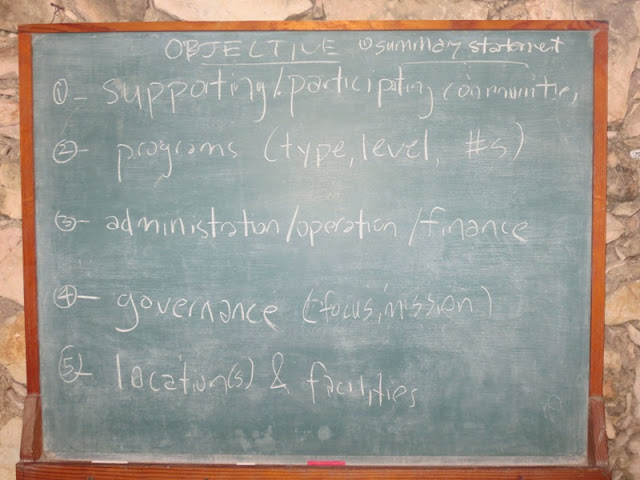 OBJECTIVE ① summary statement
① - supporting/participating communities
② - programs (type, level, #s)
③ - administration/operation/finance
④ - governance (focus, mission)
⑤ - location(s) & facilities